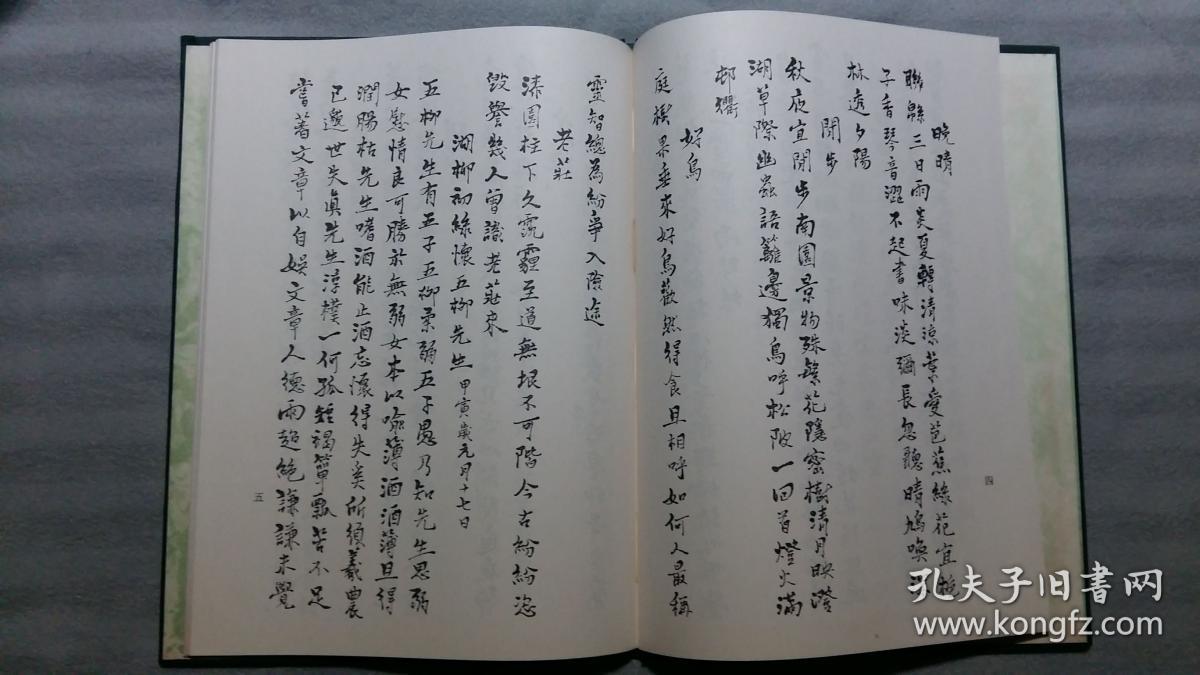 晚晴
聯緜三日雨炎夏轉清涼葉愛芭蕉綠花宜
子香琴音澀不起書味淡彌長忽聽晴鳩喚
林透夕陽
閒步
秋夜宜閒步南園景物殊繁花隱密樹清月映澄
湖草際幽蟲語籬邊獨鳥呼松陂一回首燈火滿
邨衢
好鳥
庭樹界垂來好鳥歡然得食且相呼如何人最稱
四
靈智總為紛爭入險途
老莊
漆園柱下久霓霾至道無垠不可階今古紛紛恣
毀譽幾人曾識老莊來
湖柳初綠懷五柳先生甲寅歲元月十七日
五柳先生有五子五柳柔弱五子愚乃知先生思弱
女慰情良可勝於無弱女本以喻薄酒酒薄且得
潤腸枯先生嗜酒能止酒忘懷得失奚所須羲農
已邈世失真先生淳樸一何孤短褐簞瓢苦不足
嘗著文章以自娛文章人德兩超絕謙謙未覺
五
孔夫子旧书网
www.kongfz.com